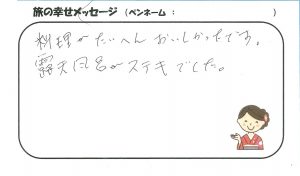 旅の幸せメッセージ （ペンネーム： ）
料理がたいへんおいしかったです。
露天風呂がステキでした。